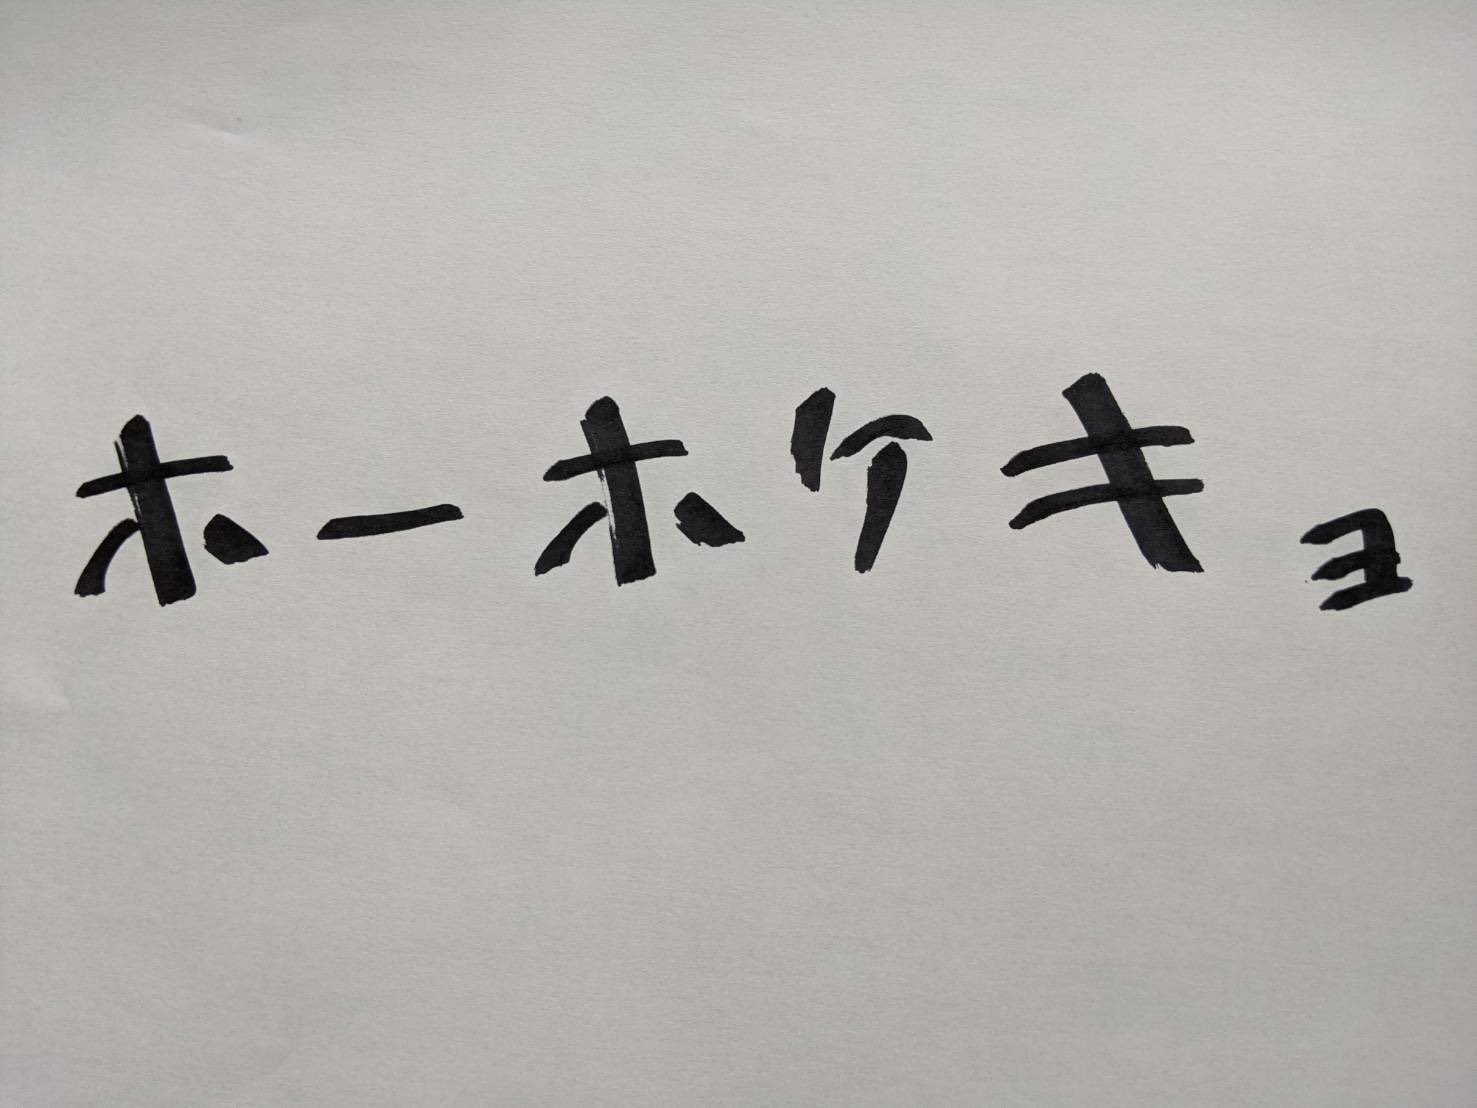 ホーホケキョ